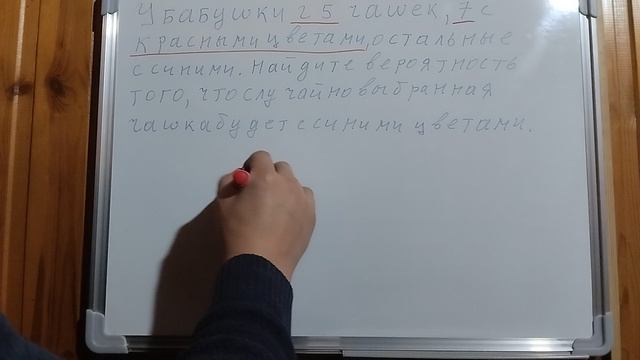 У бабушки 25 чашек, 7 с
красными цветами, остальные
с синими. Найдите вероятность
того, что случайно выбранная
чашка будет с синими цветами.